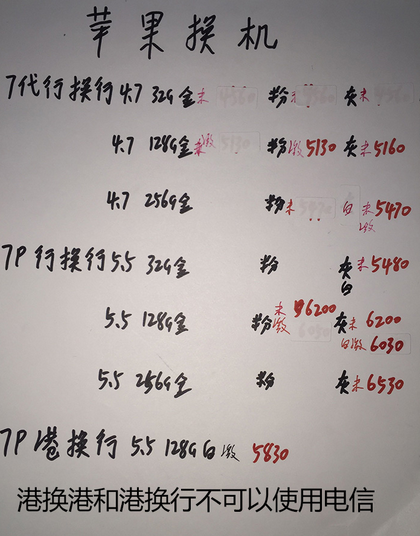 苹果换机
7代行换行4.7 32G金未 粉未 灰未
4.7 128G金未激 粉激5130 灰未5160
4.7 256G金 粉未 白未5470
激
7P行换行5.5 32G金 粉 灰未5480
白
5.5 128G金 粉未6200 灰未6200
激 白激6030
5.5 256G金 粉 灰未6530
7P港换行 5.5 128G白激 5830
港换港和港换行不可以使用电信